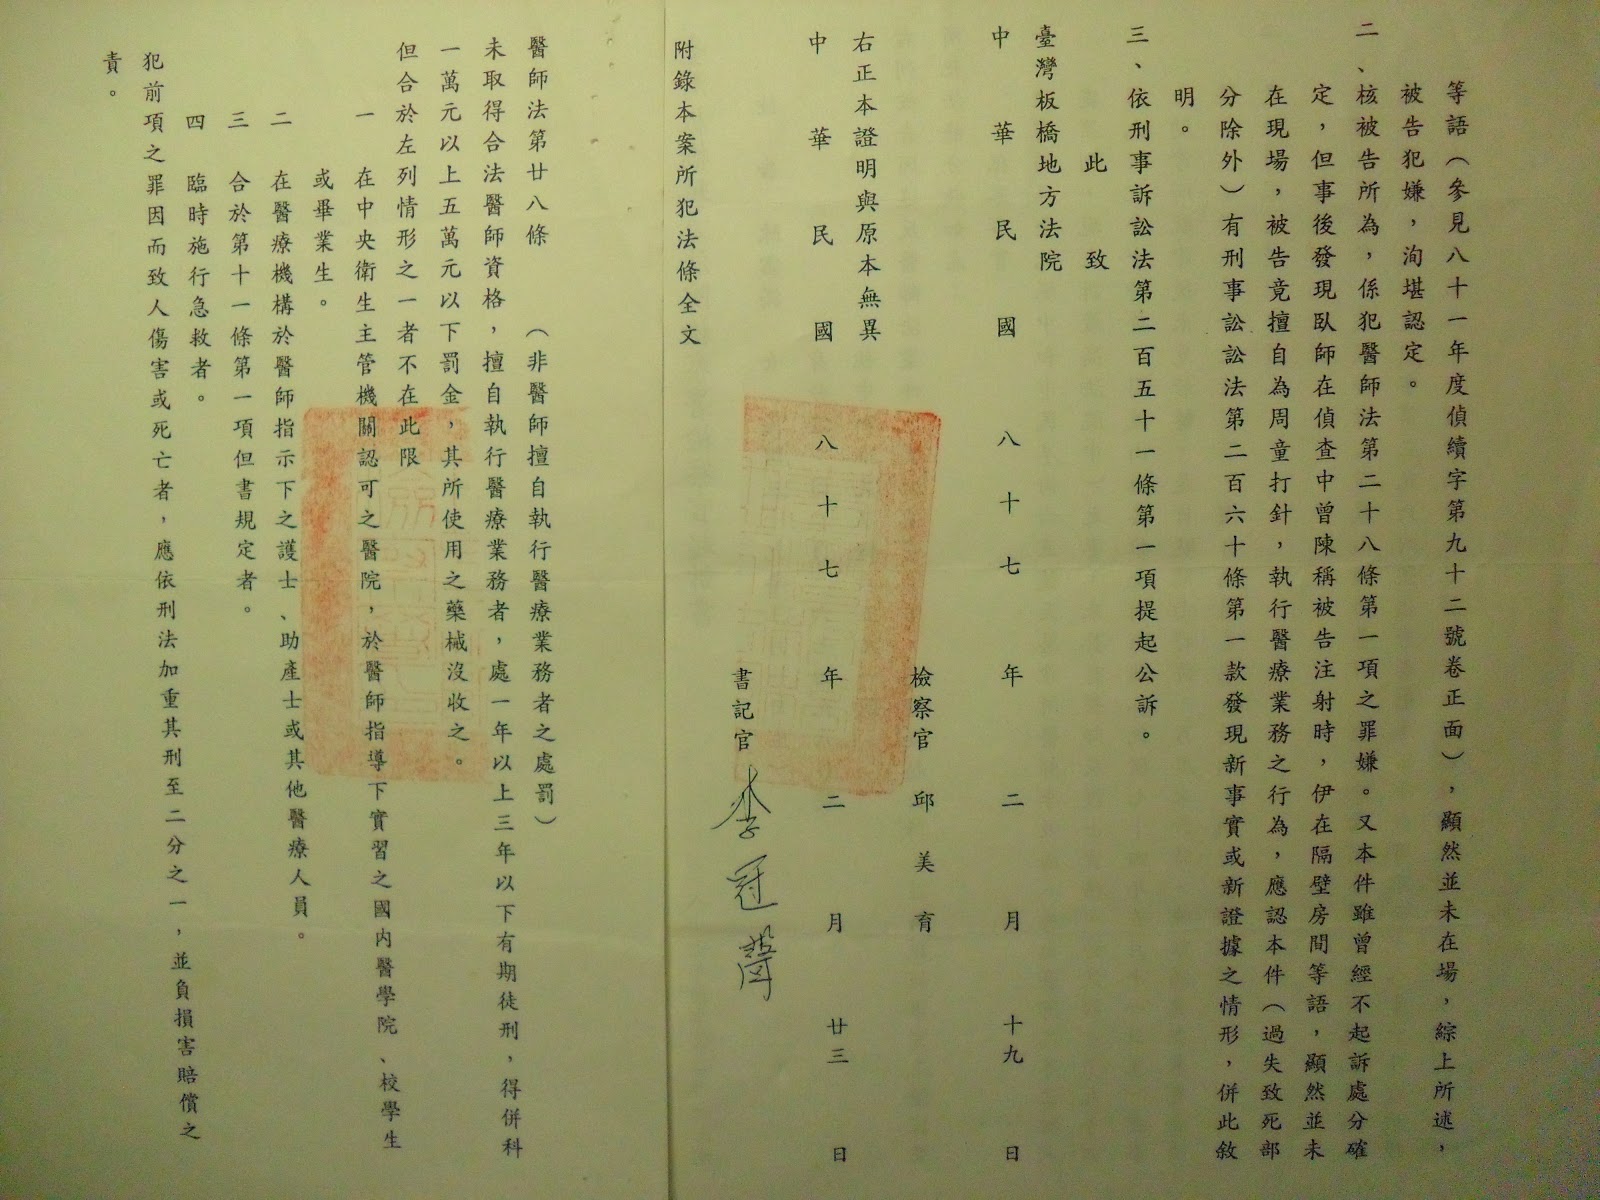 等語（參見八十一年度偵續字第九十二號卷正面），顯然並未在場，綜上所述，
被告犯嫌，洵堪認定。
二、核被告所為，係犯醫師法第二十八條第一項之罪嫌。又本件雖曾經不起訴處分確
定，但事後發現臥師在偵查中曾陳稱被告注射時，伊在隔壁房間等語，顯然並未
在現場，被告竟擅自為周童打針，執行醫療業務之行為，應認本件（過失致死部
分除外）有刑事訟訟法第二百六十條第一款發現新事實或新證據之情形，併此敘
明。
三、依刑事訴訟法第二百五十一條第一項提起公訴。
此致
臺灣板橋地方法院
中華民國八十七年二月十九日
檢察官邱美育
右正本證明與原本無異
中華民國八十七年二月廿三日
書記官李冠
附錄本案所犯法條全文
醫師法第廿八條（非醫師擅自執行醫療業務者之處罰）
未取得合法醫師資格，擅自執行醫療業務者，處一年以上三年以下有期徒刑，得併科
一萬元以上五萬元以下罰金，其所使用之藥械沒收之。
但合於左列情形之一者不在此限
一　在中央衛生主管機關認可之醫院，於醫師指導下實習之國內醫學院、校學生
或畢業生。
二　在醫療機構於醫師指示下之護士、助產士或其他醫療人員。
三　合於第十一條第一項但書規定者。
四　臨時施行急救者。
犯前項之罪因而致人傷害或死亡者，應依刑法加重其刑至二分之一，並負損害賠償之
責。